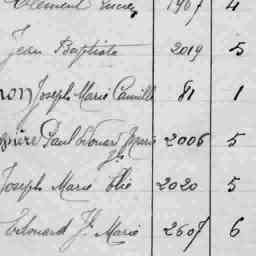 Clement Lucien 1907 4
Jean Baptiste 2019 5
non Joseph Marie Camille 81 1
Paul Edouard Marie Jh 2006 5
Joseph Marie Elie 2020 5
Edouard Jh Marie 2607 6